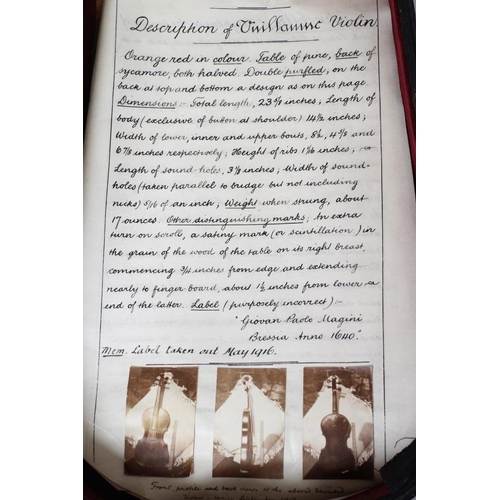 Description of Vuillaume Violin
Orange red in colour. Table of pine, back of
sycamore, both halved. Double purfled, on the
back at top and bottom a design as on this page.
Dimensions:- Total length, 23 7/8 inches; Length of
body (exclusive of button at shoulder) 14 1/2 inches;
Width of lower, inner and upper bouts, 8 1/2, 4 7/8 and
6 7/8 inches respectively; Height of ribs 1 3/16 inches;
Length of sound-holes, 3 1/8 inches; Width of sound-
holes (taken parallel to bridge but not including
nicks) 5/16 of an inch; Weight when strung, about
17 ounces. Other distinguishing marks: An extra
turn on scroll, a satiny mark (or scintillation) in
the grain of the wood of the table on its right breast,
commencing 3/4 inches from edge and extending
nearly to finger board, about 1 1/2 inches from lower
end of the latter. Label (purposely incorrect):-
"Giovan Paolo Magini
Bressia Anno 1640".
Mem. Label taken out May 1916.
Front, profile and back views of the above